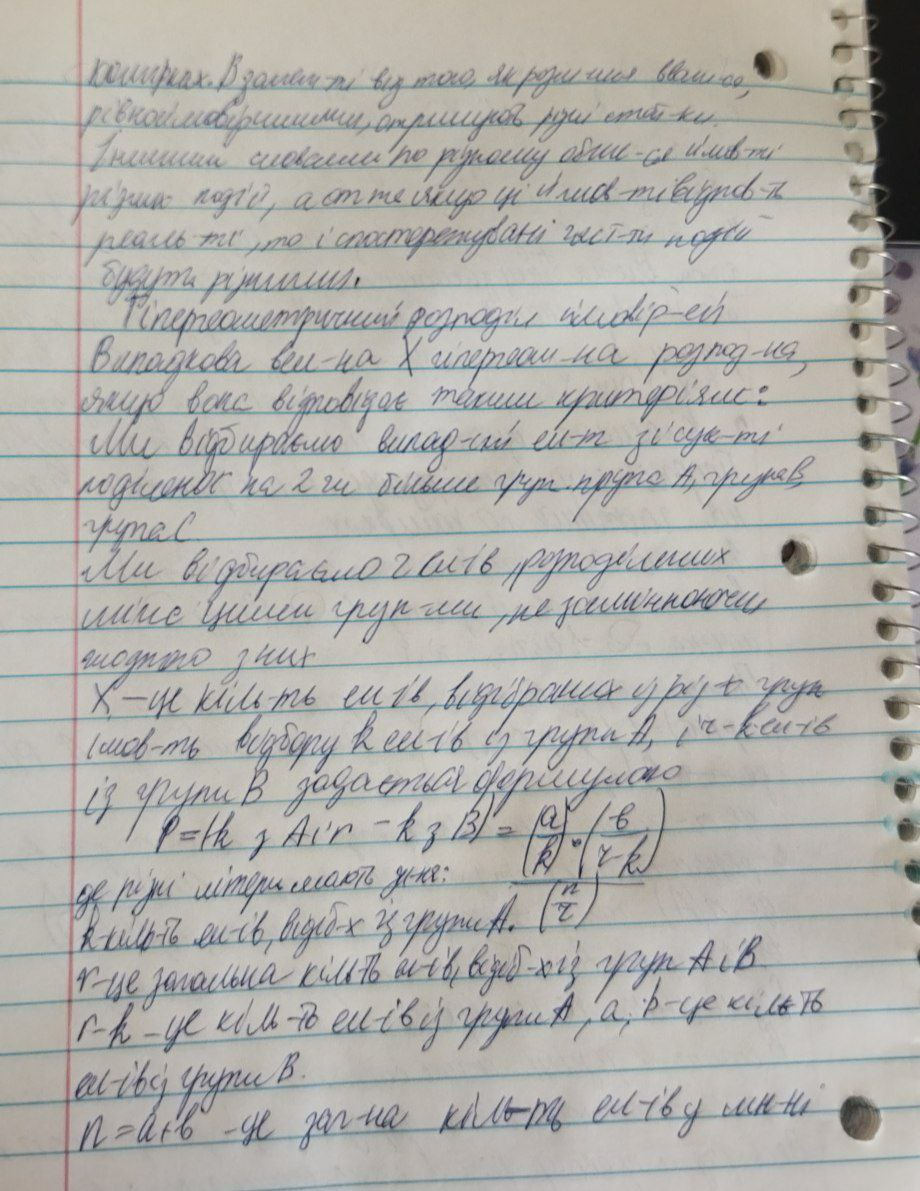 комірках. В залеж-ті від того, які розм-ння ввaж-ся,
рівноймовірнимими, отримуєтьc різні стат-ки.
Іншими словами по різному обчис-ся ймов-ті
різних подій, а отже якщо ці ймов-ті відпов-ть
реаль-ті, то і спостережувані част-ти подій
будуть різними.
Гіпергеометричний розподіл імовір-ей
Випадкова вел-на X гіпергеом-на розпод-на,
якщо вона відповідає таким критеріям:
Ми відбираємо випад-ий ел-т зі сук-ті
поділеної на 2 чи більше груп група А, група В,
група С
Ми відбираємо r ел-ів, розподілених
між цими груп-ми, не замінюючи
жодного з них
X – це кіль-ть ел-ів, відібраних із груп
імов-ть відбору k ел-ів із групи А, і r-k ел-ів
із групи В задається формулою
P=(k з A і r - k з B) = (a/k)·(b/r-k)
(n/r)
де різні літери мають зн-ня:
k-кіль-ть ел-ів, відіб-х із групи А.
r-це загальна кіль-ть ел-ів, відіб-х із груп А і В
r-k – це кіль-ть ел-ів із групи А, a, b-це кіль-ть
ел-ів із групи В.
n = a+b -це заг-на кіль-ть ел-ів у мн-ні